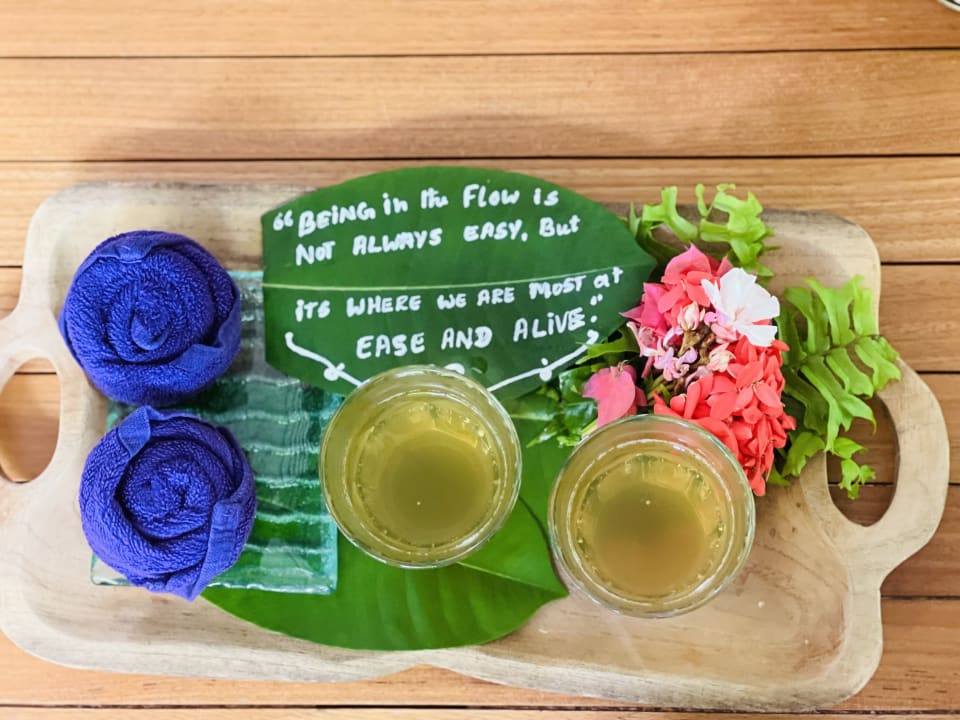 “BEING in the Flow is
NOT ALWAYS EASY, But
iTS WHERE WE ARE MOST at
EASE AND ALiVE.”